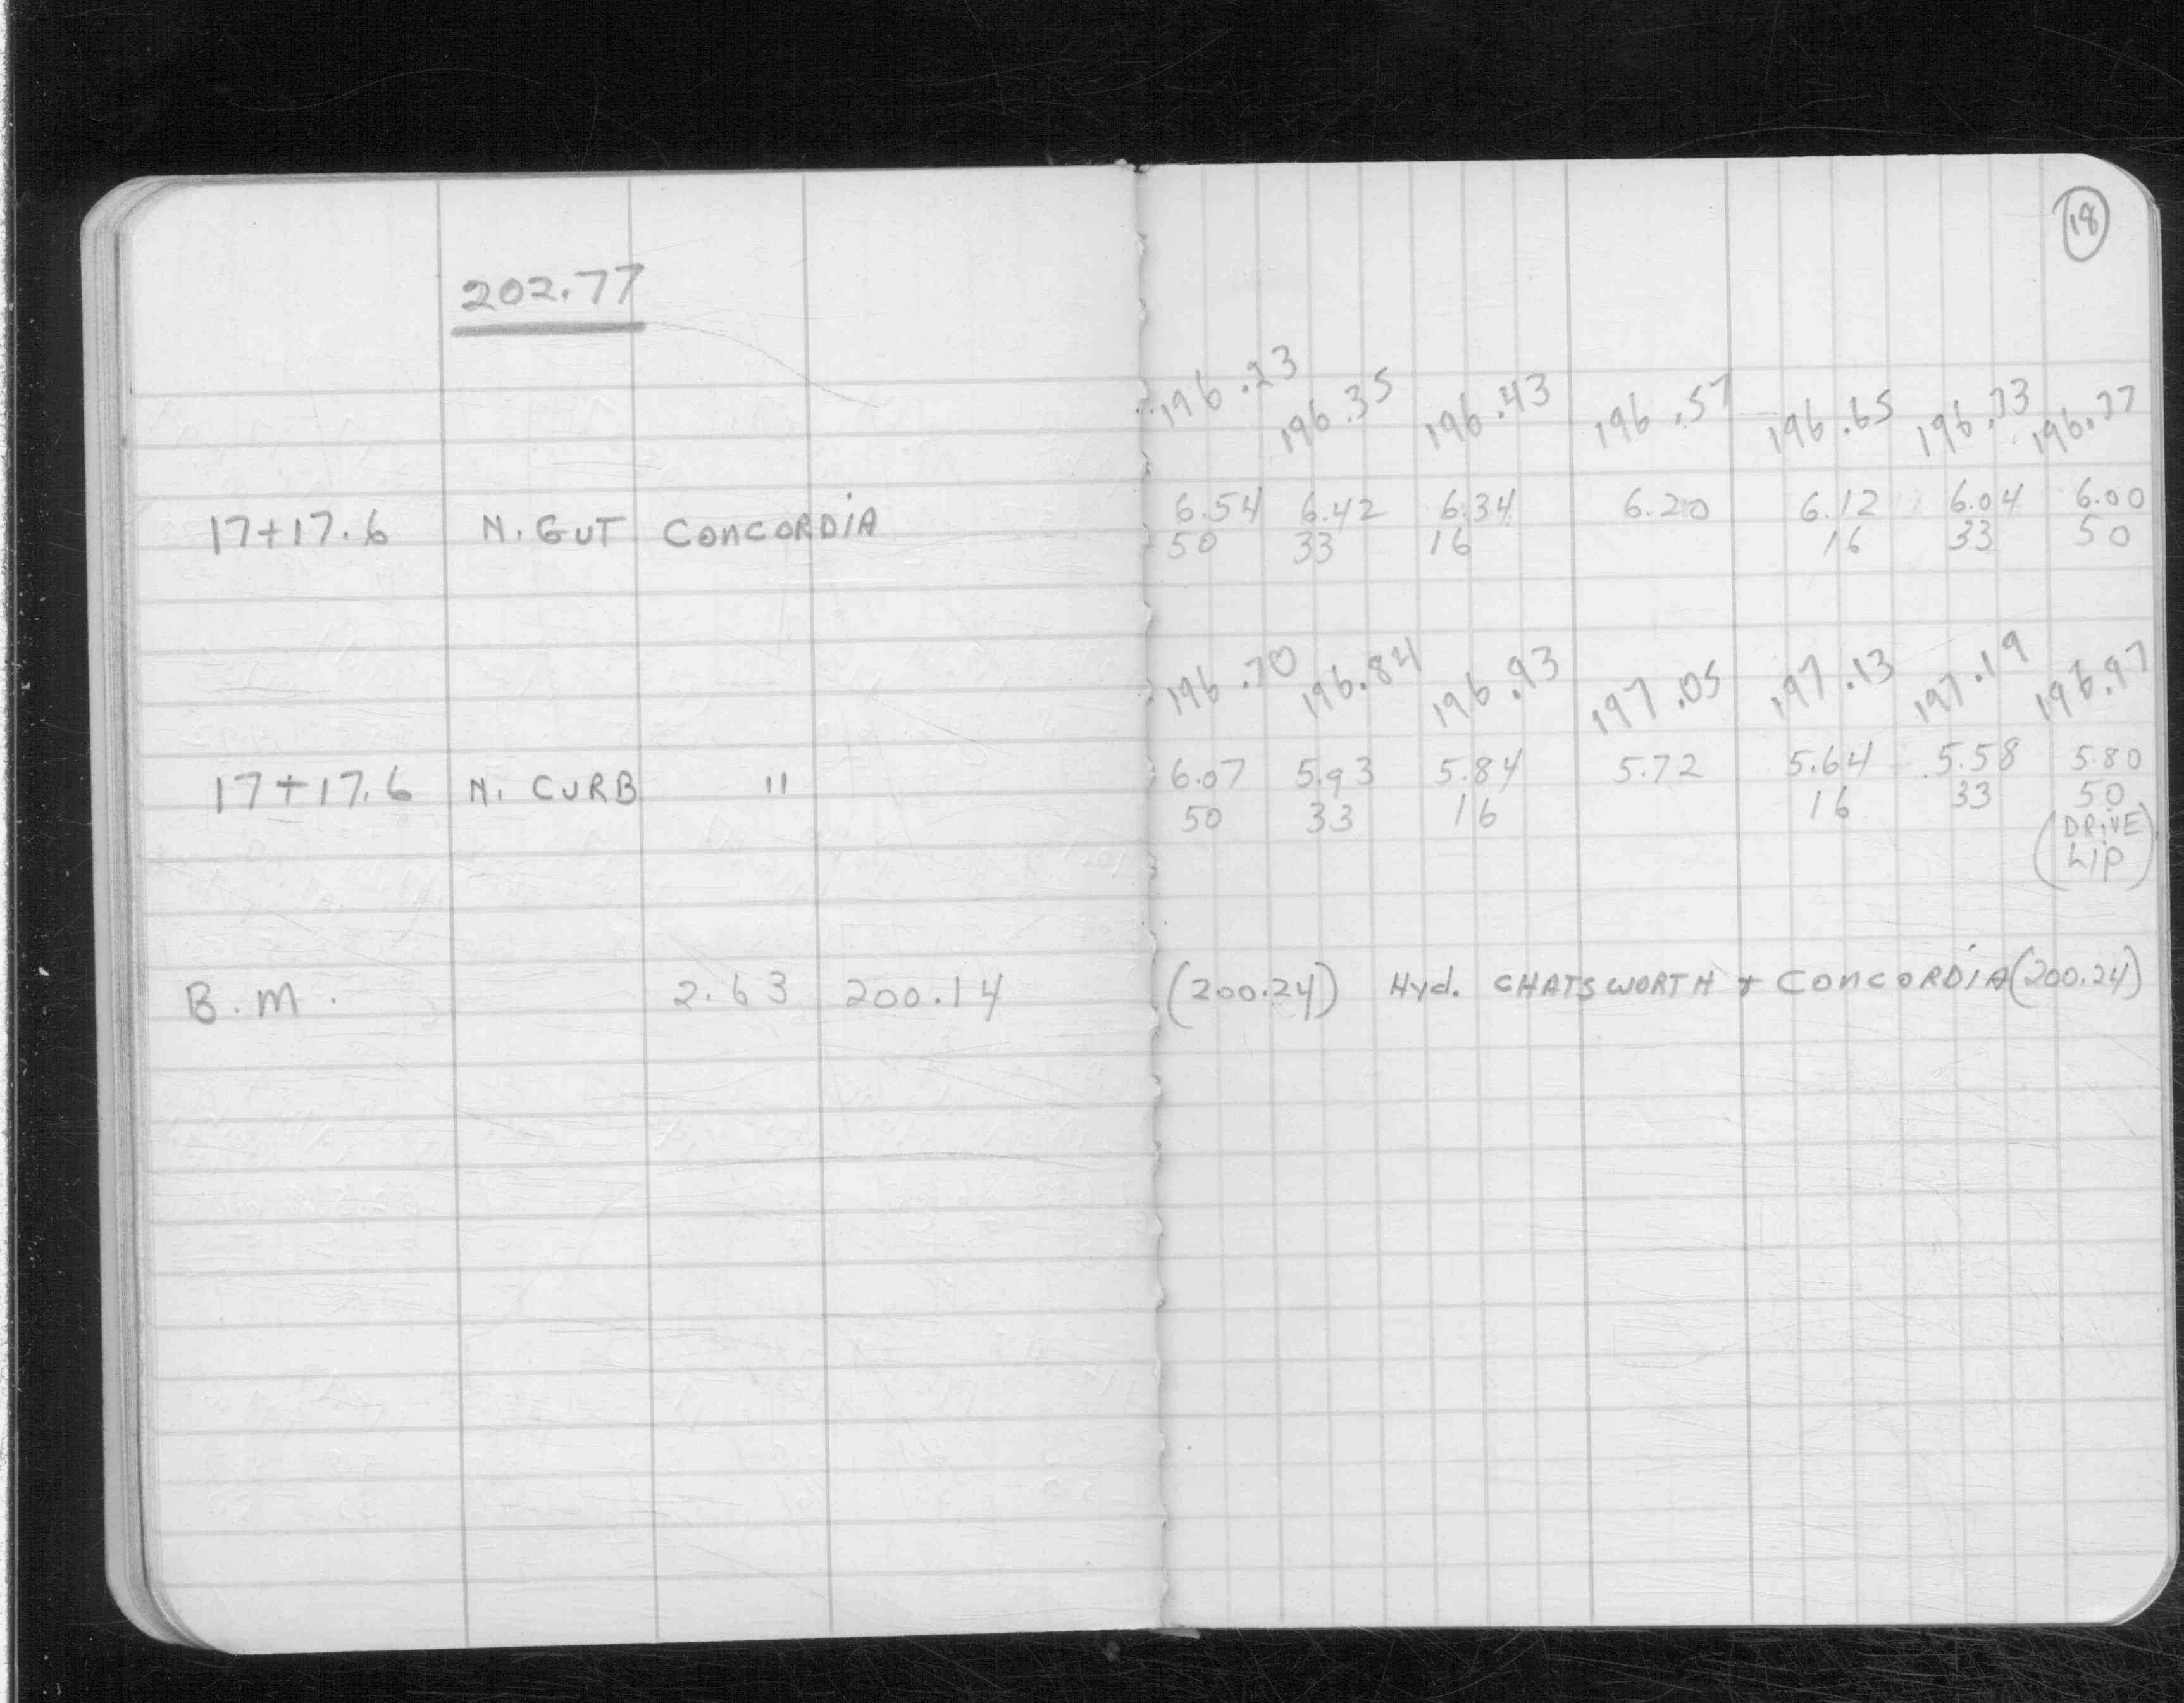 18
202.77
196.23 196.35 196.43 196.57 196.65 196.73 196.77
17+17.6 N. GUT CONCORDIA 6.54 6.42 6.34 6.20 6.12 6.04 6.00
50 33 16 16 33 50
196.70 196.84 196.93 197.05 197.13 197.19 196.97
17+17.6 N. CURB " 6.07 5.93 5.84 5.72 5.64 5.58 5.80
50 33 16 16 33 50
(DRIVE
LIP)
B.M. 2.63 200.14 (200.24) Hyd. CHATSWORTH + CONCORDIA (200.24)